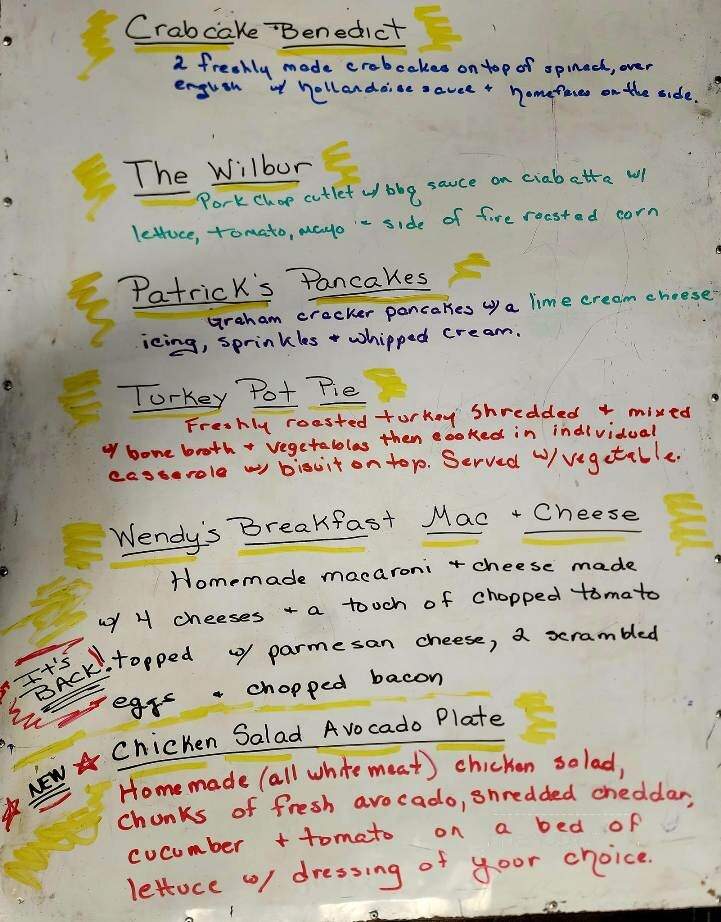 Crabcake Benedict
2 freshly made crabcakes on top of spinach, over
english w/ hollandaise sauce + homefries on the side.
The Wilbur
Pork Chop cutlet w/ bbq sauce on ciabatta w/
lettuce, tomato, mayo - side of fire roasted corn
Patrick's Pancakes
Graham cracker pancakes w/ a lime cream cheese
icing, sprinkles + whipped cream.
Turkey Pot Pie
Freshly roasted turkey shredded + mixed
w/ bone broth + vegetables then cooked in individual
casserole w/ bisuit on top. Served w/ vegetable.
Wendy's Breakfast Mac + Cheese
Homemade macaroni + cheese made
w/ 4 cheeses + a touch of chopped tomato
It's BACK! topped w/ parmesan cheese, 2 scrambled
eggs + chopped bacon
NEW Chicken Salad Avocado Plate
Homemade (all white meat) chicken salad,
chunks of fresh avocado, shredded cheddar,
cucumber + tomato on a bed of
lettuce w/ dressing of your choice.